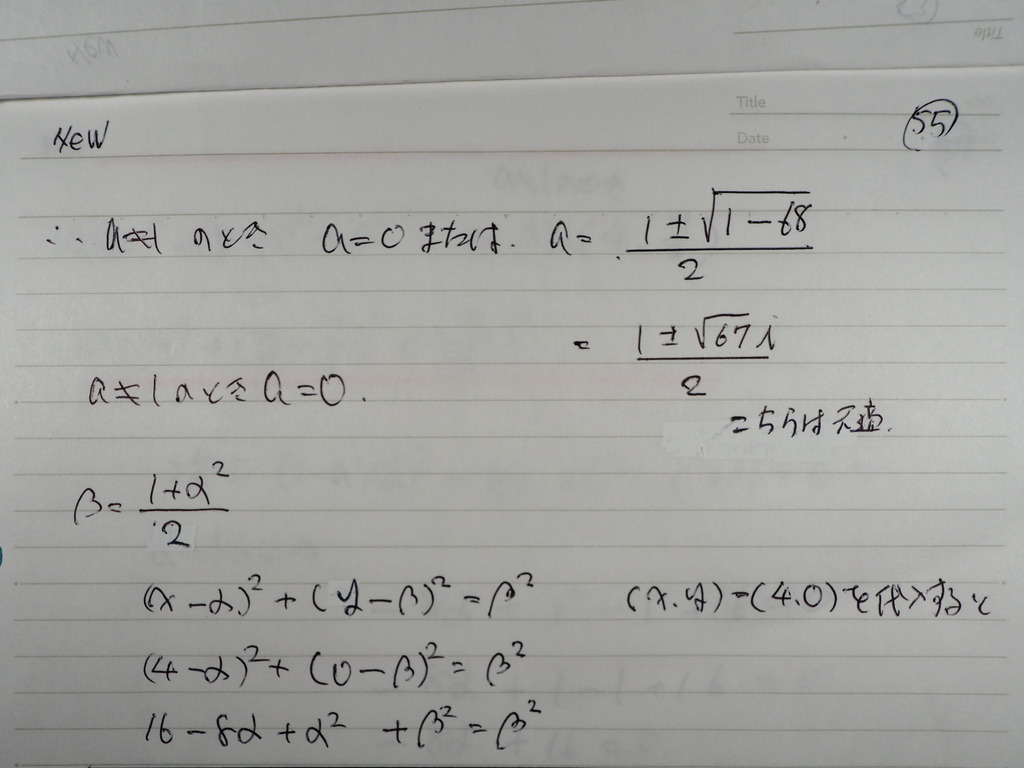 NEW
Title
Date
55
∴ a≠1 のとき a=0 または. a= (1±√(1-68))/2
= (1±√67 i)/2
a≠1 のとき a=0.
こちらは不適.
β= (1+α²)/2
(x-α)²+(y-β)²=β² (x.y)=(4.0)を代入すると
(4-α)²+(0-β)²=β²
16-8α+α² +β²=β²